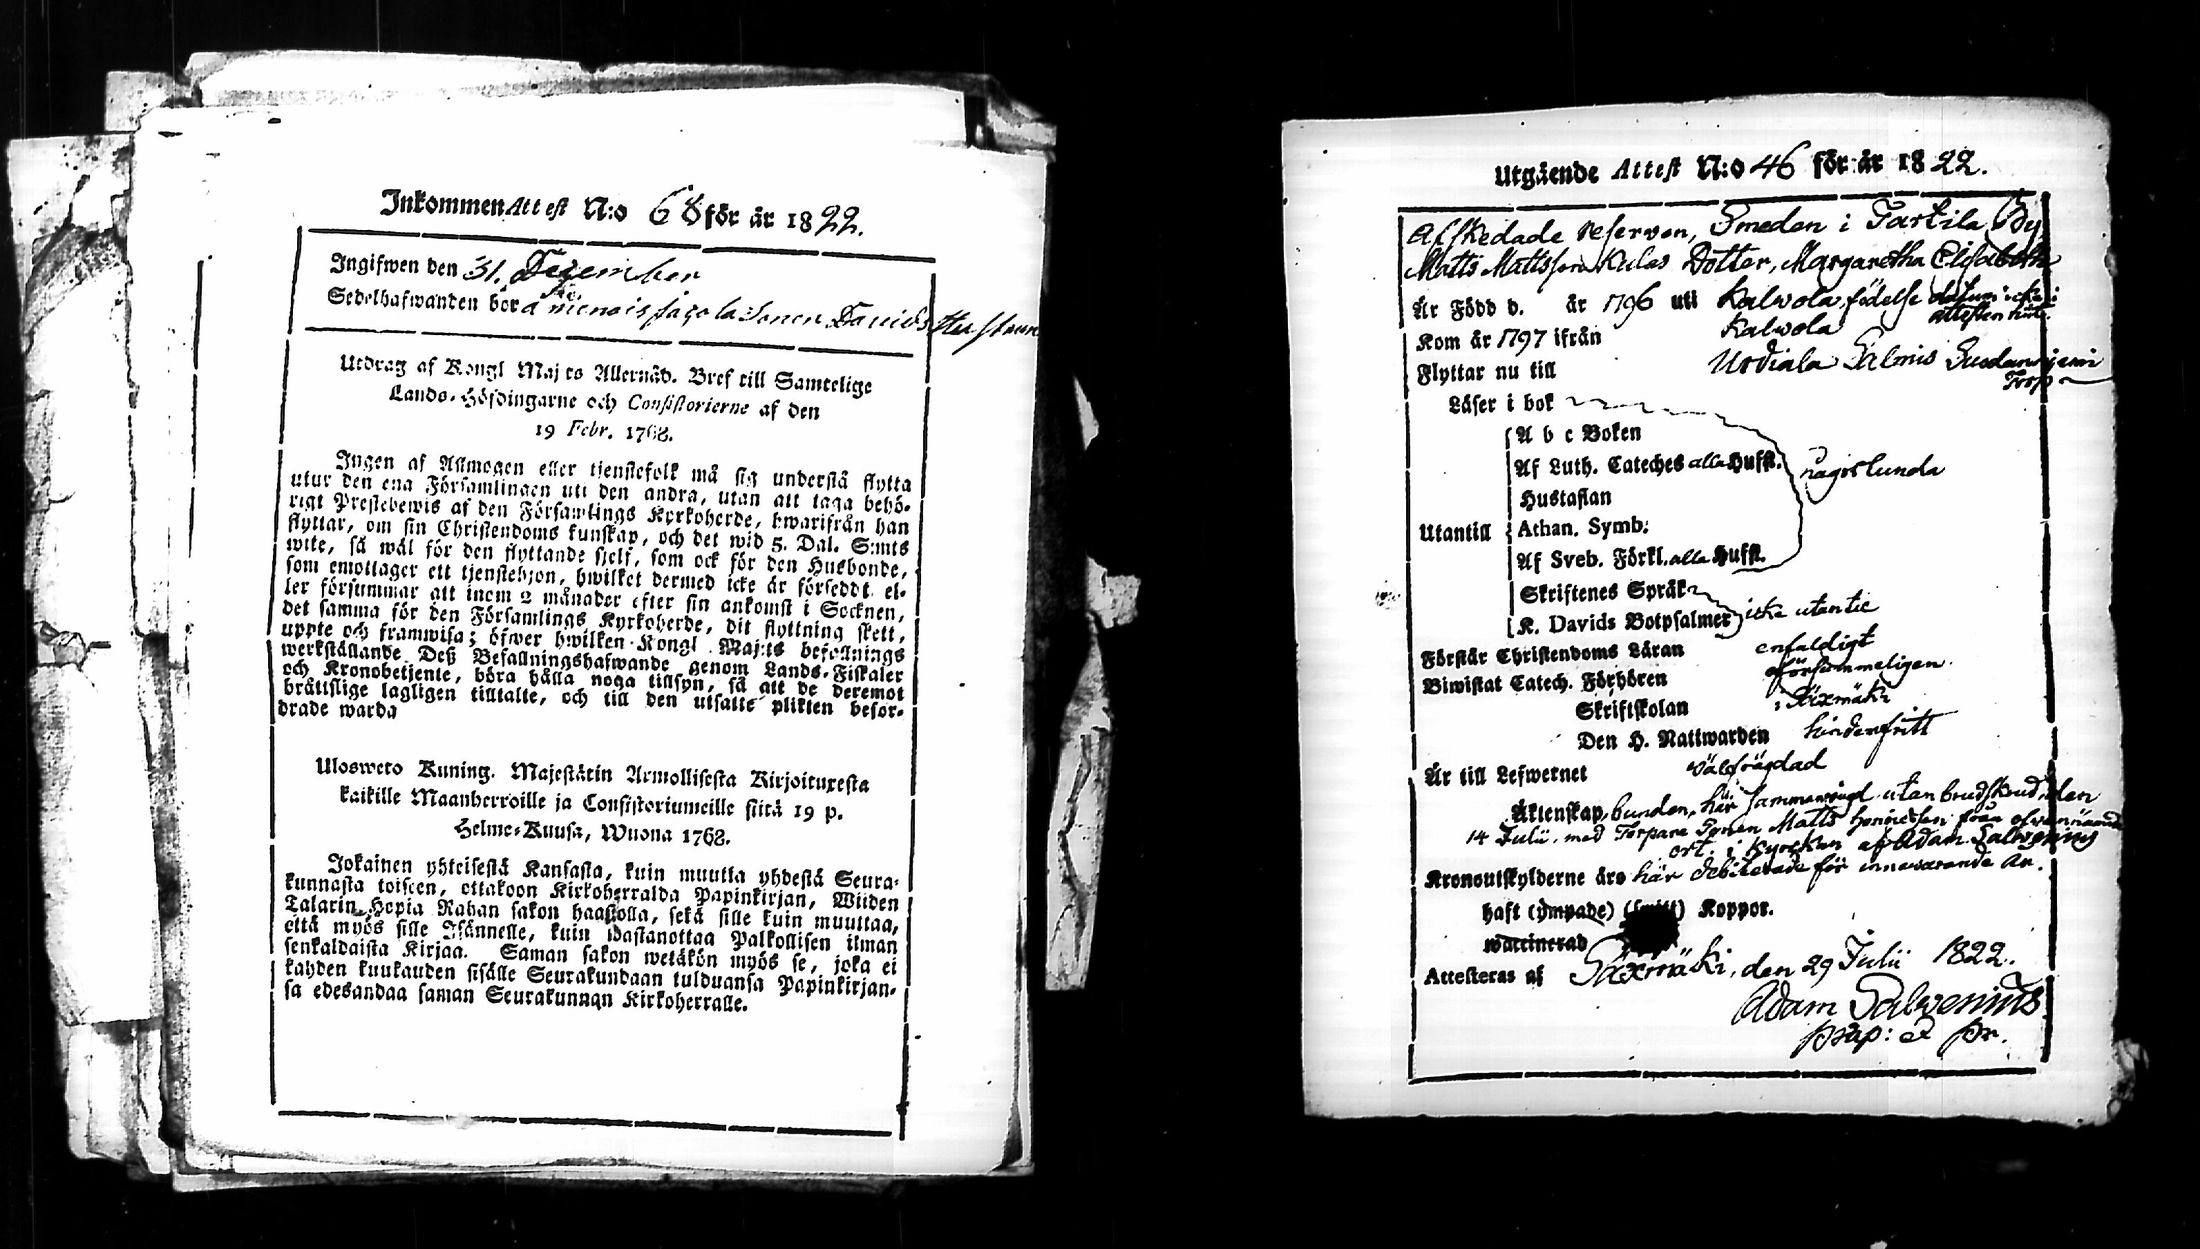 Inkommen Attest N:o 68 för år 1822.
Ingifwen den 31. December
Sedelhafwanden bör
Utdrag af Kongl Maj:ts Allernåd. Bref till Samtelige
Lands-Höfdingarne och Consistorierne af den
19 Febr. 1768.
Ingen af Allmogen eller tjenstefolk må sig understå flytta
utur den ena Församlingen uti den andra, utan att taga behö-
rigt Prestebewis af den Församlings Kyrkoherde, hwarifrån han
flyttar, om sin Christendoms kunskap, och det wid 5. Dal. S:mts
wite, så wäl för den flyttande sjelf, som ock för den Husbonde,
som emottager ett tjenstehjon, hwilket dermed icke är förseddt, el-
ler försummar att inom 2 månader efter sin ankomst i Socknen,
det samma för den Församlings Kyrkoherde, dit flyttning skett,
uppte och framwisa; öfwer hwilken Kongl Maj:ts befallnings
werkställande Deß Befallningshafwande genom Lands-Fiskaler
och Kronobetjente, böra hålla noga tillsyn, så att de deremot
bråttslige lagligen tilltalte, och till den utsatte plikten befor-
drade warda
Ulosweto Kuning. Majestätin Armollisesta Kirjoituxesta
kaikille Maanherroille ja Consistoriumeille siitä 19 p.
Helme-Kuusa, Wuona 1768.
Jokainen yhteisestä Kansasta, kuin muutta yhdestä Seura-
kunnasta toiseen, ottakoon Kirkoherralda Papinkirjan, Wiiden
Talarin Hopia Rahan sakon haastolla, sekä sille kuin muuttaa,
että myös sille Isännelle, kuin wastanottaa Palkollisen ilman
senkaldaista Kirjaa. Saman sakon wetäkön myös se, joka ei
kahden kuukauden sisälle Seurakundaan tulduansa Papinkirjan-
sa edesandaa saman Seurakunnan Kirkoherralle.
Utgående Attest N:o 46 för år 1822.
Afskedade reserven, Smeden i Tartila By
Matts Mattsson Kulas Dotter, Margaretha Elisabeth
Är Född d. år 1796 uti Kalwola, födelse datum icke i
attesten
Kom år 1797 ifrån Kalwola
Flyttar nu till Urdiala Salmis
Torp
Läser i bok
A b c Boken
Af Luth. Cateches alla Hufst. någorlunda
Hustaflan
Utantill Athan. Symb:
Af Sveb. Förkl. alla Hufst.
Skriftenes Språk
K. Davids Botpsalmer icke utantil
Förstår Christendoms Läran enfaldigt
Biwistat Catech. Förhören oförsummeligen
Skriftskolan i Säxmäki
Den H. Nattwarden hinderfritt
Är till Lefwernet wälfrägdad
Äktenskap, bunden, här sammanwigd utan brudskrud, den
14 Julii, med Torpare Sonen Matts från ofwannämnde
ort, i Kyrckan af Adam Salvenius
Kronoutskylderne äro här debiterade för innewarande år.
haft (ympade) (smitt) Koppor.
waccinerad
Attesteras af Säxmäki, den 29 Julii 1822.
Adam Salvenius
præp: & pr.